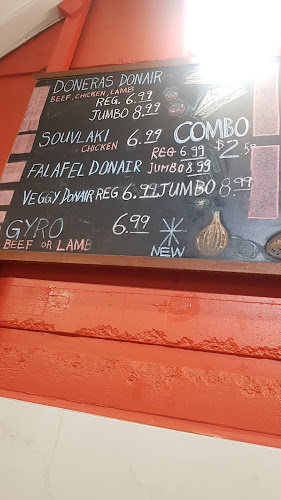 DONERAS DONAIR
BEEF, CHICKEN, LAMB
REG. 6.99
JUMBO 8.99
SOUVLAKI 6.99
- CHICKEN
COMBO
$2.59
FALAFEL DONAIR REG 6.99 JUMBO 8.99
VEGGY DONAIR REG 6.99 JUMBO 8.99
GYRO 6.99
BEEF OR LAMB
NEW